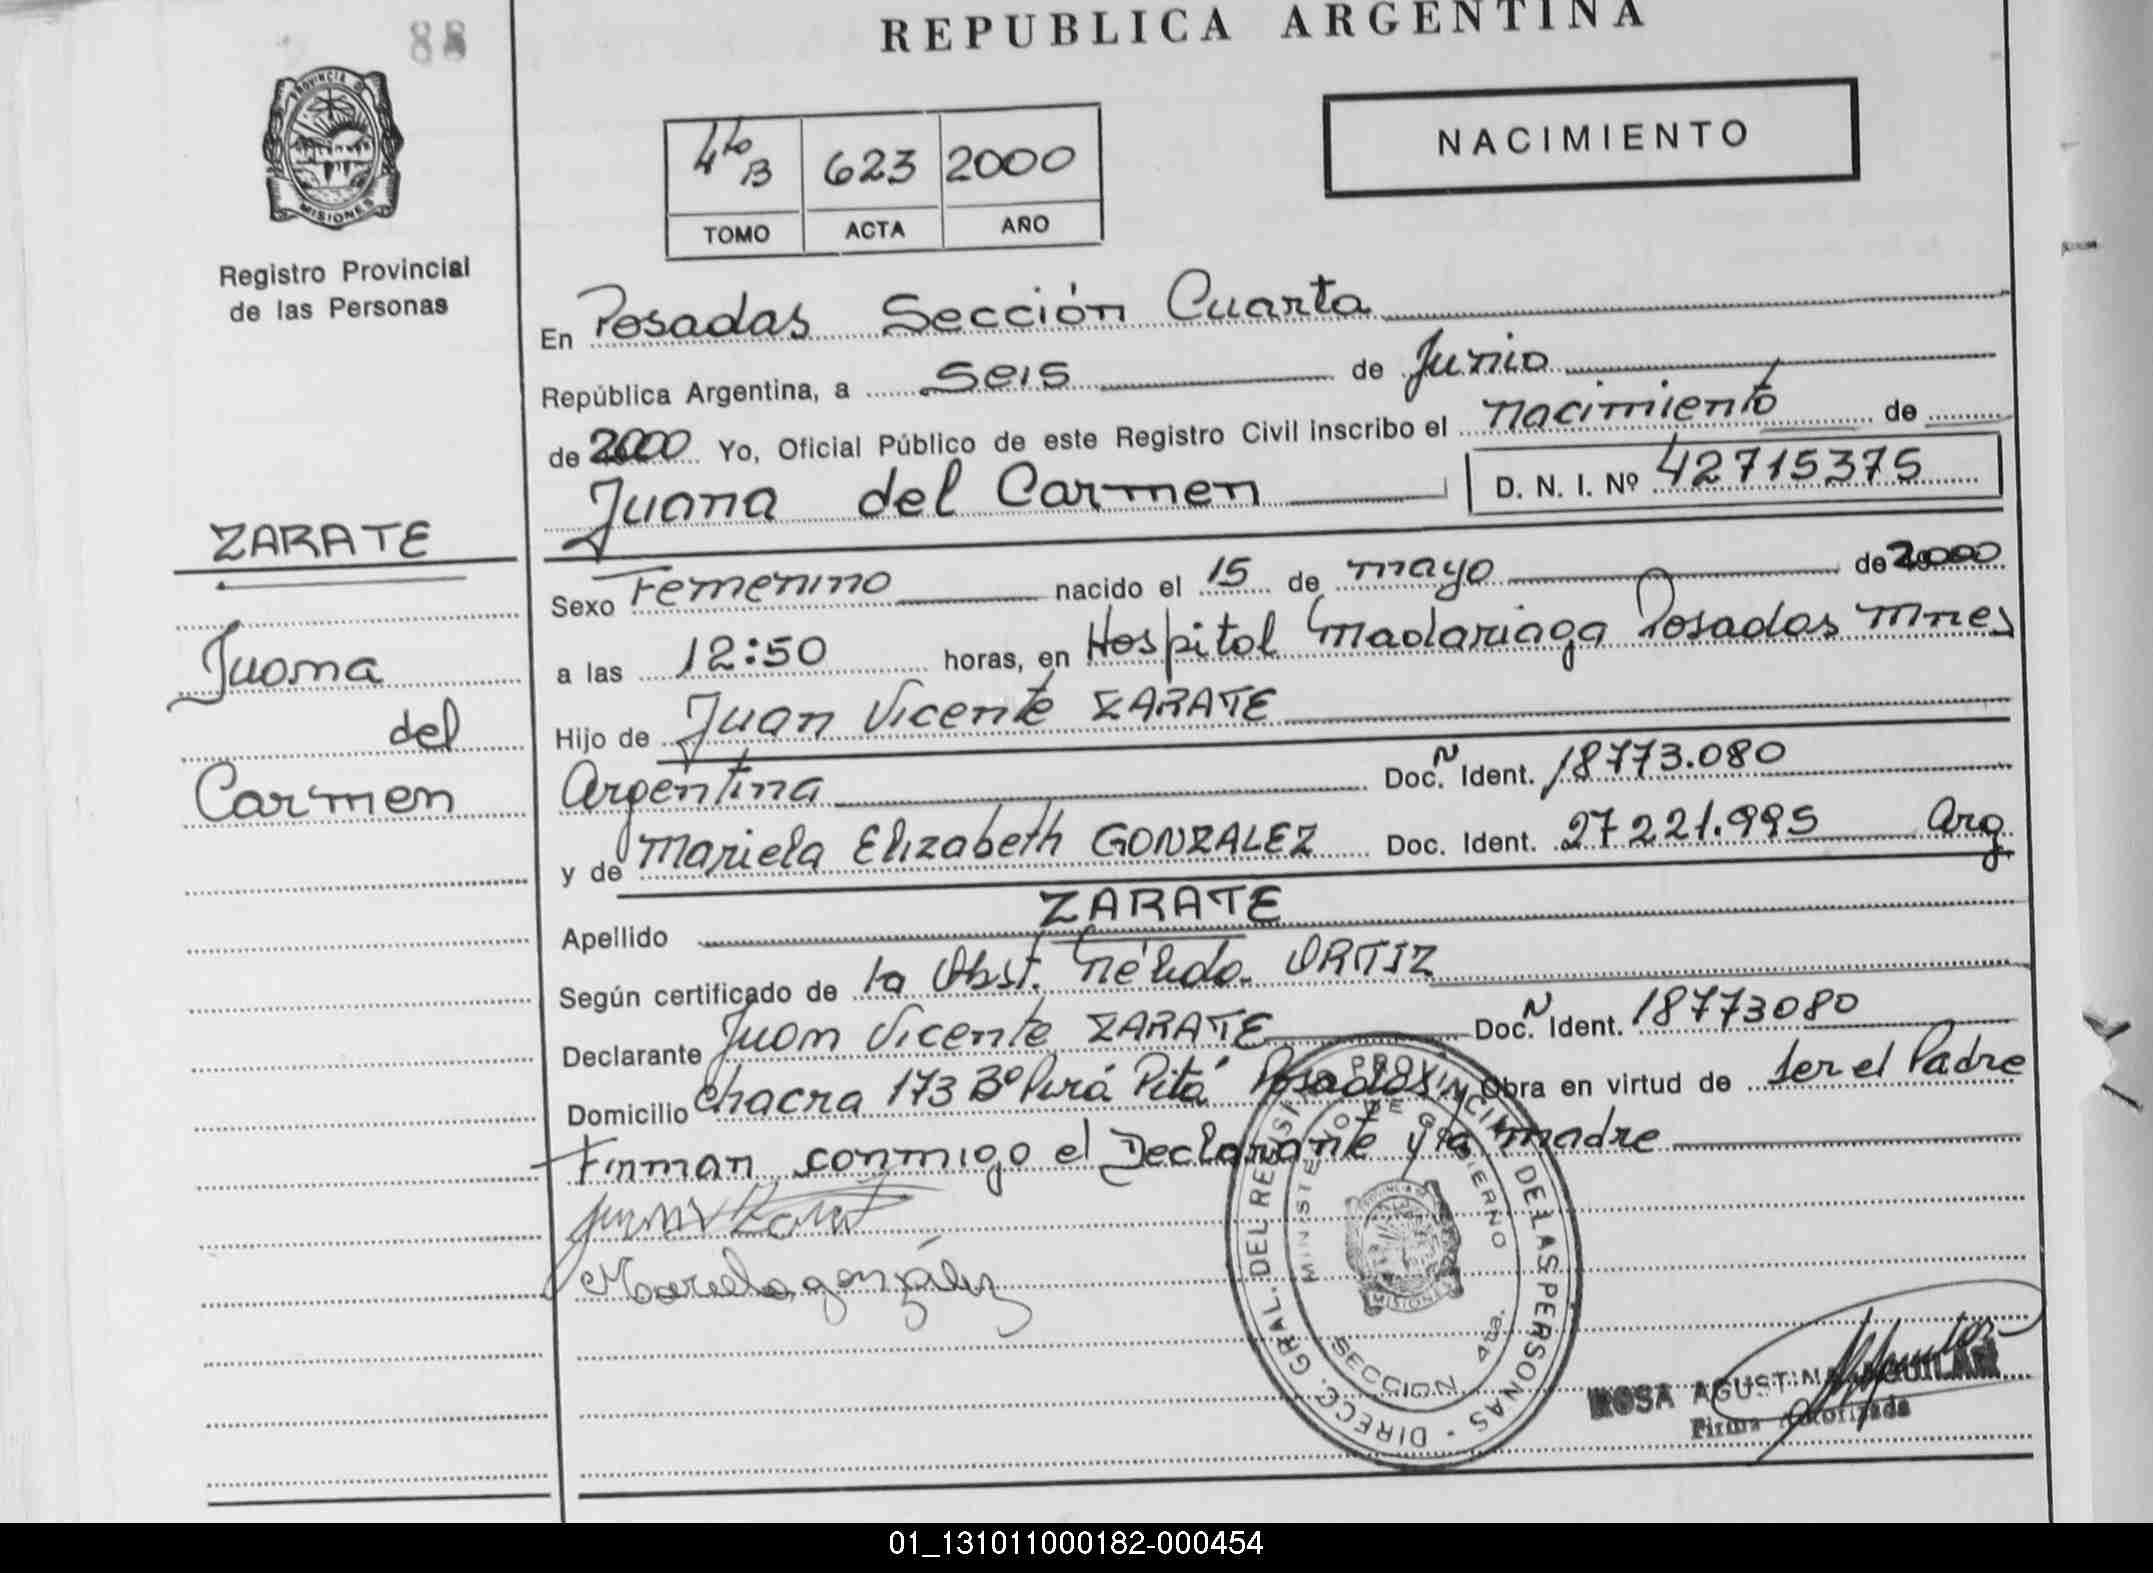 88
REPUBLICA ARGENTINA
PROVINCIA DE
MISIONES
Registro Provincial
de las Personas
NACIMIENTO
4to B 623 2000
TOMO ACTA AÑO
En Posadas Sección Cuarta
República Argentina, a seis de Junio
de 2000 Yo, Oficial Público de este Registro Civil inscribo el nacimiento de
Juana del Carmen D. N. I. Nº 42715375
ZARATE
Juana
del
Carmen
Sexo Femenino nacido el 15 de mayo de 2000
a las 12:50 horas, en Hospital Madariaga Posadas Mnes
Hijo de Juan Vicente ZARATE
Argentina Doc. N Ident. 18773.080
y de Mariela Elizabeth GONZALEZ Doc. Ident. 27221.995 Arg.
Apellido ZARATE
Según certificado de la Obst. Nélida ORTIZ
Declarante Juan Vicente ZARATE Doc. N Ident. 18773080
Domicilio Chacra 173 Bº Purá Pitá Posadas Obra en virtud de ser el Padre
Firman conmigo el Declarante y la madre
Mariela gonzález
DIRECC. GRAL. DEL REGIST. PROVINCIAL DE LAS PERSONAS
MINISTERIO DE GOBIERNO
MISIONES
SECCION 4ta.
ROSA AGUSTINA AGUILAR
Firma Autorizada
01_131011000182-000454